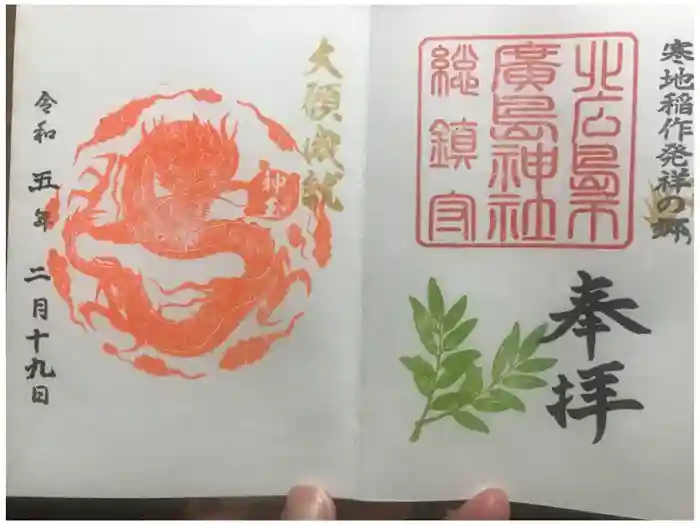 寒地稲作発祥の郷
北広島市
廣島神社
総鎮守
奉拝
大願成就
令和五年二月十九日